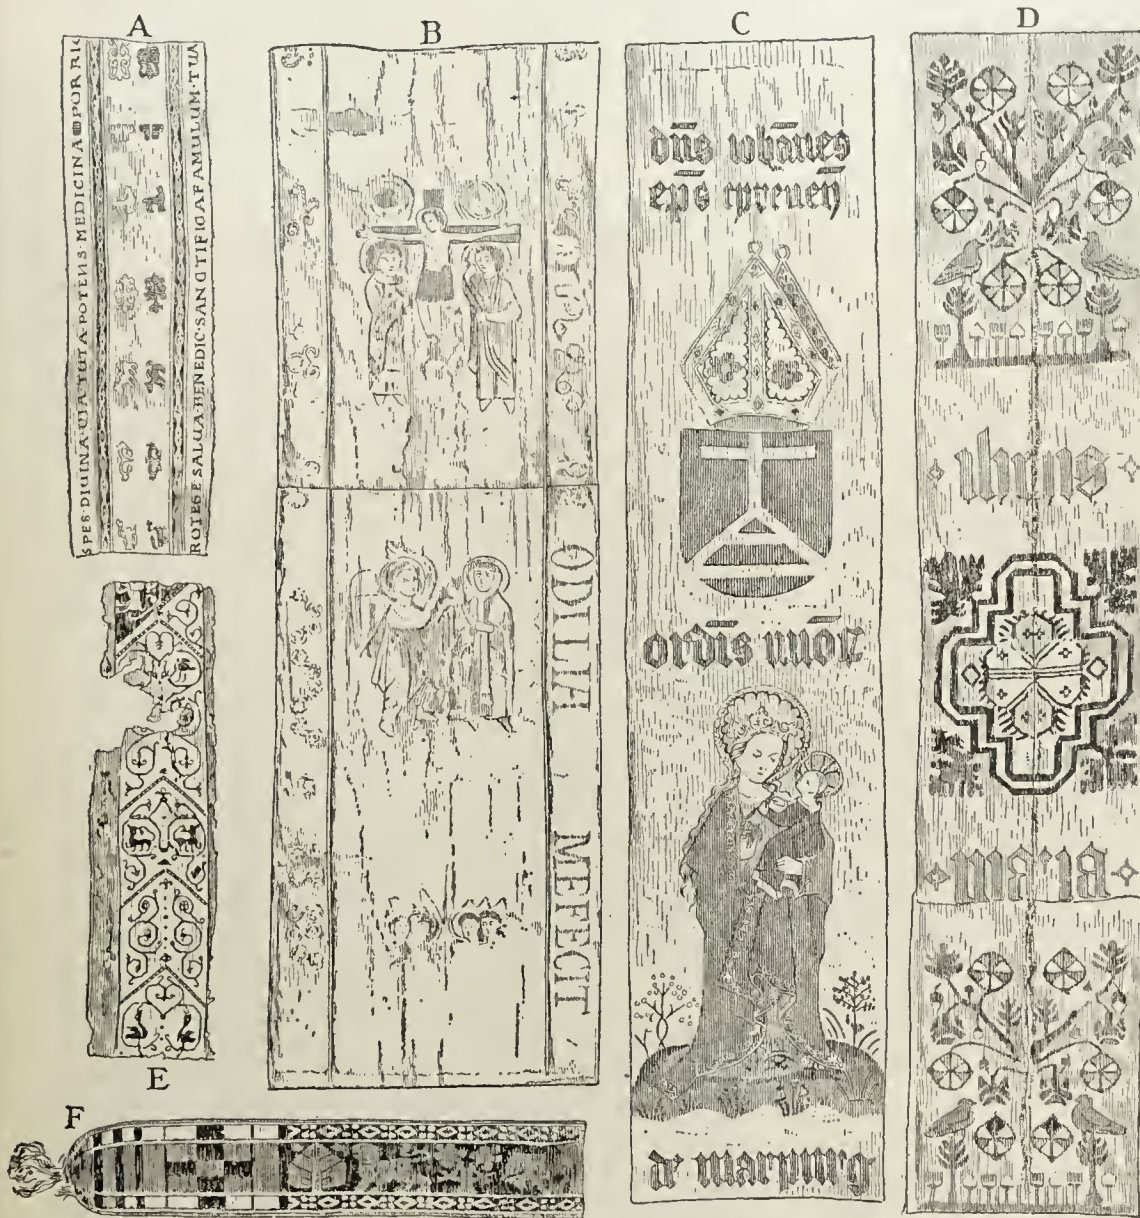 A
B
C
D
SPES·DIUINA·UIA·TUTA·POTENS·MEDICINA PORRI
ROTEGE SALUA·BENEDIC·SANCTIFICA FAMULUM·TUA
ODILIA MEFECIT
dn̄s ioh̄anes
ep̄s cyrenen̄
ord̄is min̄or
de marpurg
ihesus
maria
E
F